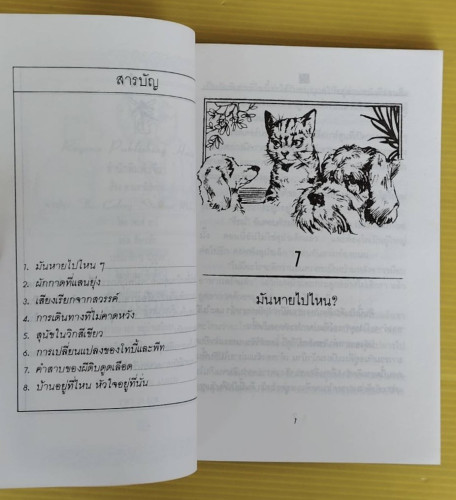 สารบัญ
1. มันหายไปไหน ๆ
2. ผักกาดที่แสนยุ่ง
3. เสียงเรียกจากสวรรค์
4. การเดินทางที่ไม่คาดหวัง
5. สุนัขในวิกสีเขียว
6. การเปลี่ยนแปลงของโทบี้และพีท
7. คำสาบของผีดิบดูดเลือด
8. บ้านอยู่ที่ไหน หัวใจอยู่ที่นั่น
1
มันหายไปไหน?
1